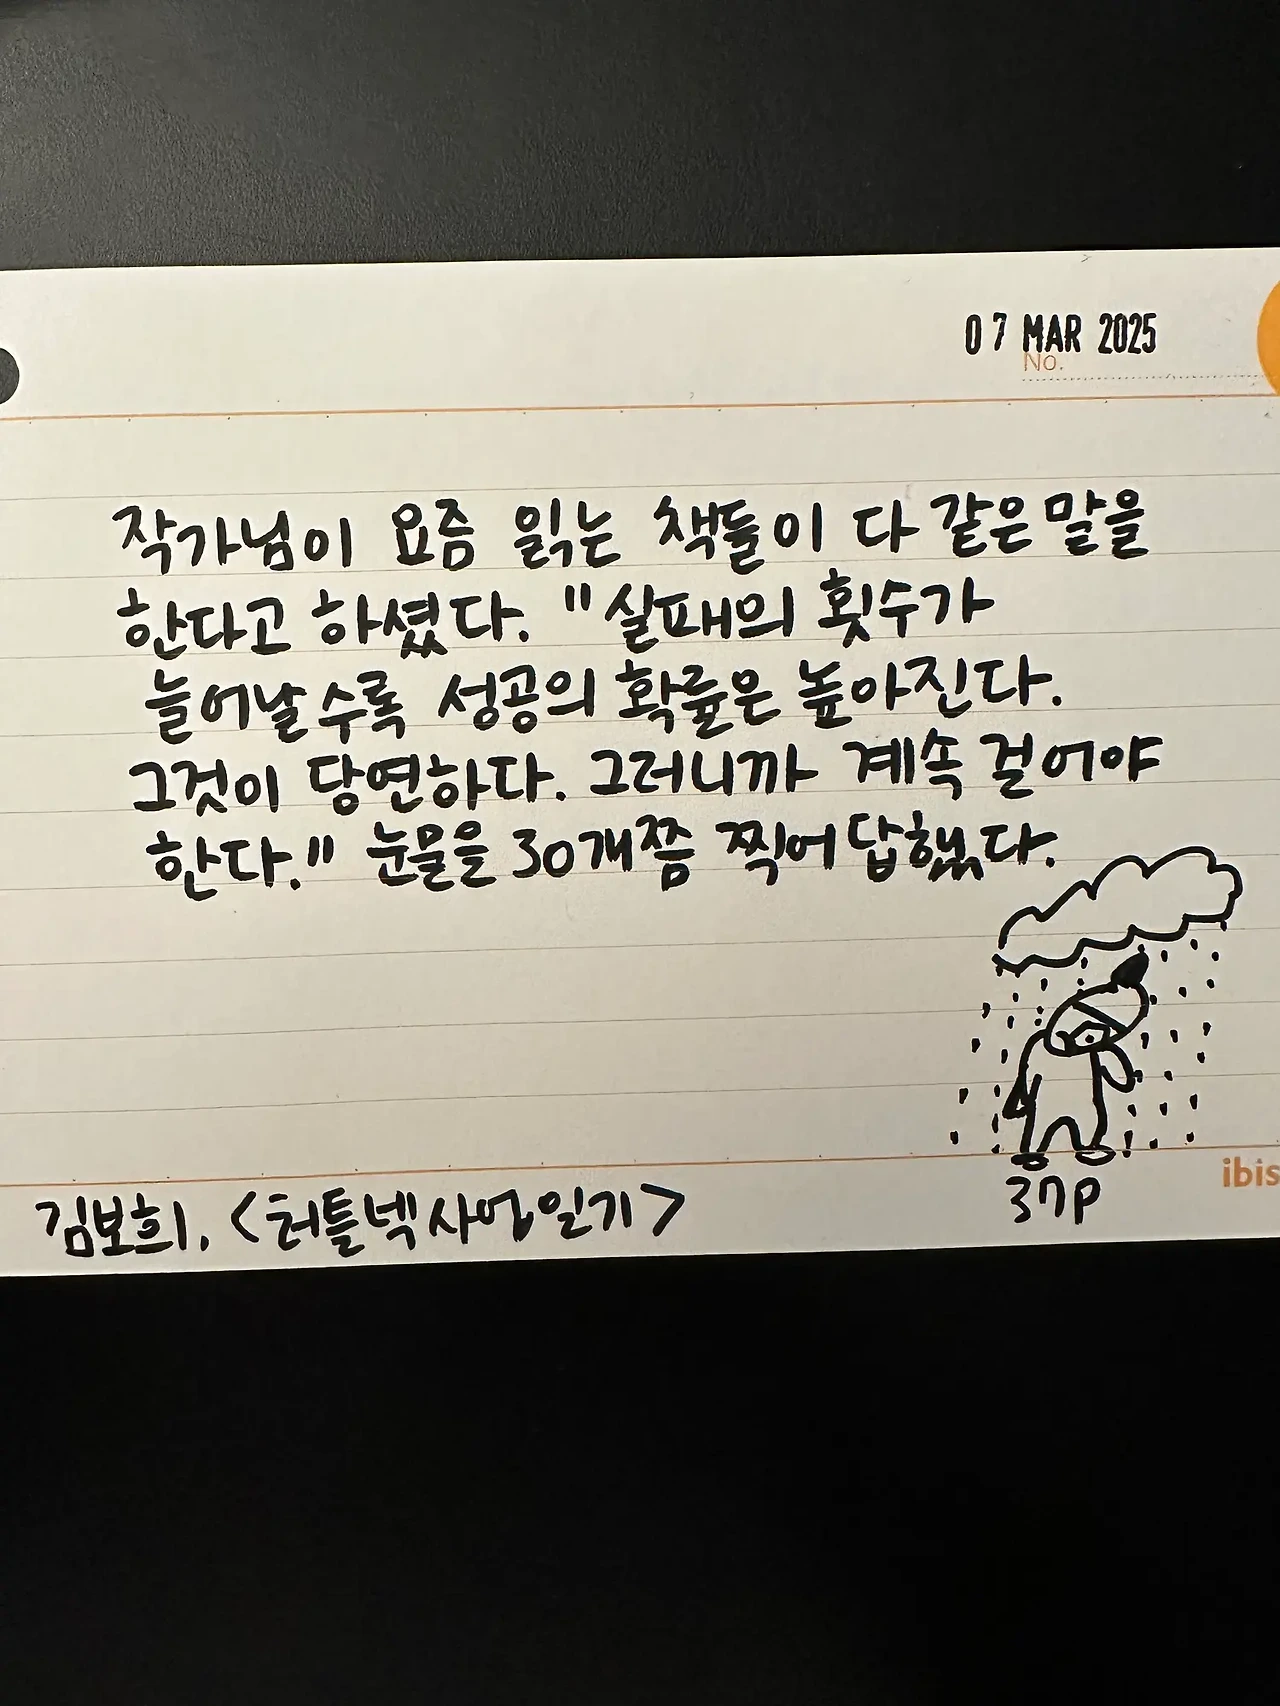 07 MAR 2025
No.
작가님이 요즘 읽는 책들이 다 같은 말을
한다고 하셨다. "실패의 횟수가
늘어날수록 성공의 확률은 높아진다.
그것이 당연하다. 그러니까 계속 걸어야
한다." 눈물을 30개쯤 찍어 답했다.
37p
ibis
김보희, <터틀넥사업일기>